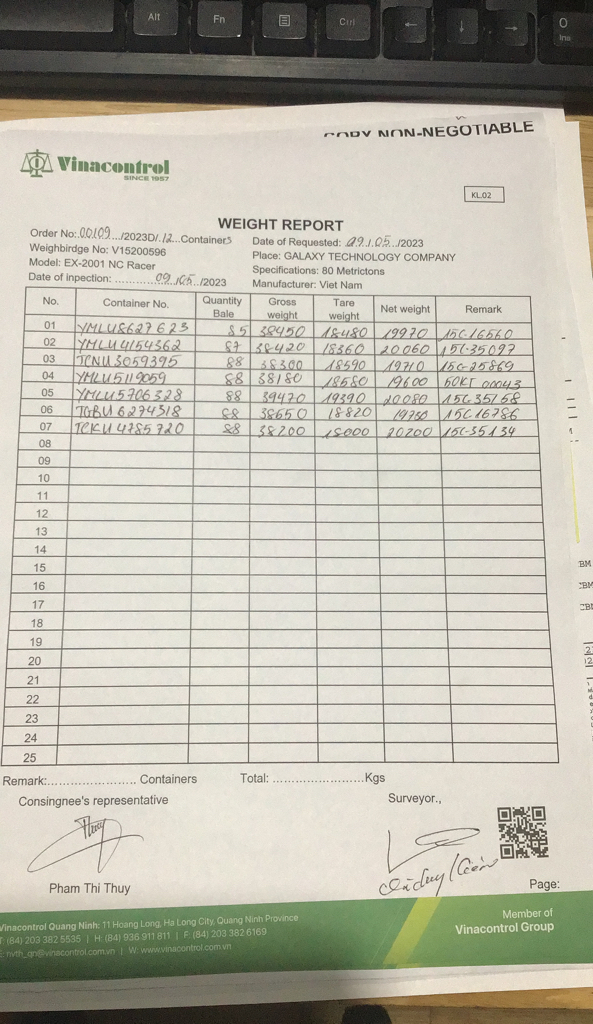 Alt
Fn
Ctrl
O
Ins
COPY NON-NEGOTIABLE
Vinacontrol
SINCE 1957
KL.02
WEIGHT REPORT
Order No:.00109.../2023D/.12...Containers Date of Requested: .09.1.05.../2023
Weighbirdge No: V15200596 Place: GALAXY TECHNOLOGY COMPANY
Model: EX-2001 NC Racer Specifications: 80 Metrictons
Date of inpection: ............ 09./05../2023 Manufacturer: Viet Nam
No. Container No. Quantity Bale Gross weight Tare weight Net weight Remark
01 YMLU8627623 85 38450 18480 19970 15C-16560
02 YMLU4154362 87 38420 18360 20060 15C-35097
03 TCNU3059395 88 38300 18590 19710 15C-25869
04 YMLU5119059 88 38180 18580 19600 50KT 00043
05 YMLU5706328 88 39470 19390 20080 15C35158
06 TGBU6274518 88 38650 18820 19750 15C16786
07 TCKU4785720 88 38200 18000 20200 15C-35134
08
09
10
11
12
13
14
15
16
17
18
19
20
21
22
23
24
25
Remark:........................ Containers Total: .........................Kgs
Consingnee's representative Surveyor.,
Pham Thi Thuy Page:
Vinacontrol Quang Ninh: 11 Hoang Long, Ha Long City, Quang Ninh Province
T: (84) 203 382 5535 | H: (84) 936 911 811 | F: (84) 203 382 6169
E: nvth_qn@vinacontrol.com.vn | W: www.vinacontrol.com.vn
Member of
Vinacontrol Group